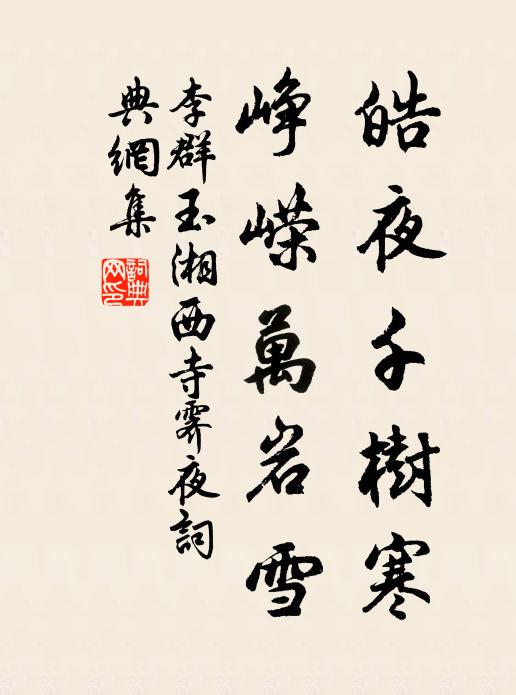 皓夜千樹寒
峥嵘萬岩雪
李群玉湘西寺霁夜詞
典網集
詞典網印